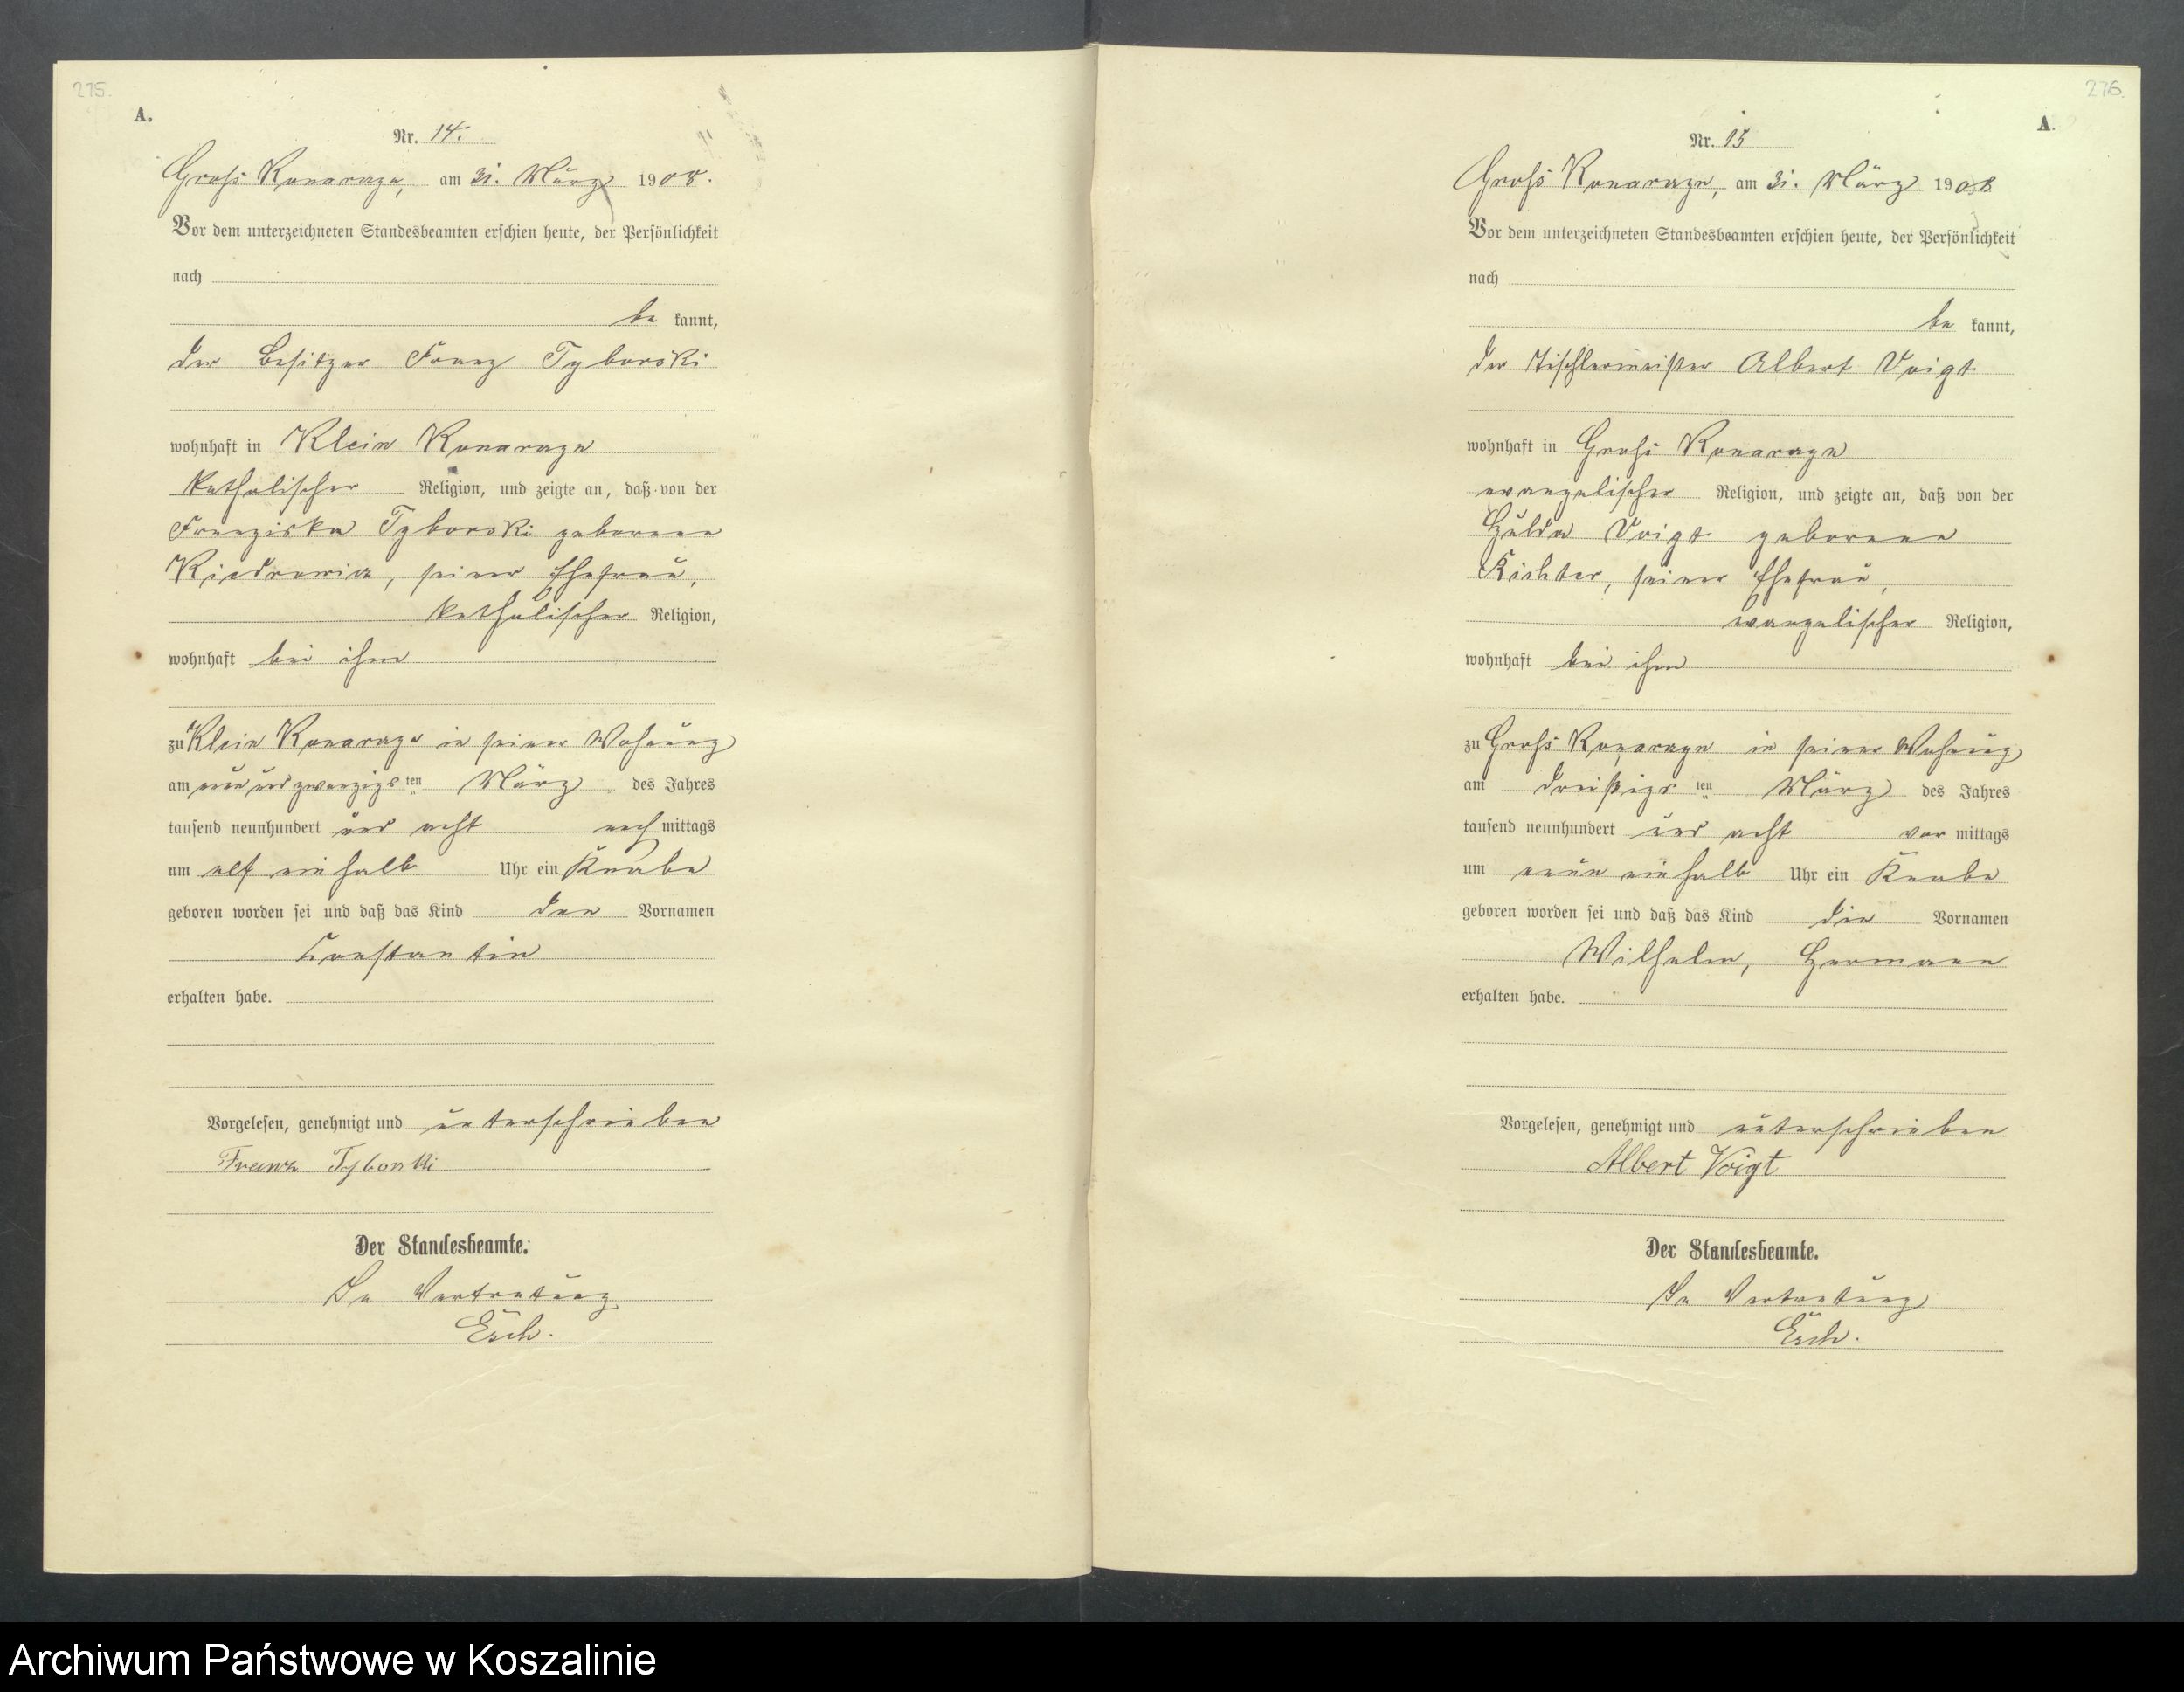 275.
A.
Nr. 14.
Groß Konarczyn, am 31. März 1908.
Vor dem unterzeichneten Standesbeamten erschien heute, der Persönlichkeit
nach
be kannt,
der Besitzer Franz Tyborski
wohnhaft in Klein Konarczyn
katholischer Religion, und zeigte an, daß von der
Franziska Tyborski geborene
seiner Ehefrau,
katholischer Religion,
wohnhaft bei ihm
zu Klein Konarczyn in seiner Wohnung
am neunundzwanzigsten März des Jahres
tausend neunhundert und acht nachmittags
um elf einhalb Uhr ein Knabe
geboren worden sei und daß das Kind den Vornamen
Constantin
erhalten habe.
Vorgelesen, genehmigt und unterschrieben
Franz Tyborski
Der Standesbeamte.
In Vertretung
Esch.
276.
A.
Nr. 15
Groß Konarczyn, am 31. März 1908
Vor dem unterzeichneten Standesbeamten erschien heute, der Persönlichkeit
nach
be kannt,
der Tischlermeister Albert Voigt
wohnhaft in Groß Konarczyn
evangelischer Religion, und zeigte an, daß von der
Hulda Voigt geborene
Richter, seiner Ehefrau,
evangelischer Religion,
wohnhaft bei ihm
zu Groß Konarczyn in seiner Wohnung
am dreißigsten März des Jahres
tausend neunhundert und acht vormittags
um neun einhalb Uhr ein Knabe
geboren worden sei und daß das Kind die Vornamen
Wilhelm, Hermann
erhalten habe.
Vorgelesen, genehmigt und unterschrieben
Albert Voigt
Der Standesbeamte.
In Vertretung
Esch.
Archiwum Państwowe w Koszalinie